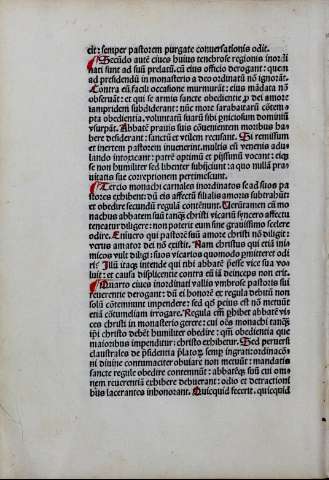 cit: semper pastorem purgate conuersationis odit.
Secūdo autē ciues huius tenebrose regionis inordi
nati sunt ad suū prelatū. cū eius officio derogant: quem
ad presidendū in monasterio a deo ordinatū nō ignorāt.
Contra eū facili occasione murmurāt: eius mādata nō
obseruāt: et qui se armis sancte obedientie ꝓ dei amore
tanꝗdem subdiderant: nūc more sarabaitarū cōtem
pta obedientia. voluntatū suarū sibi ꝑniciosum dominiū
vsurpāt. Abbatē prauis suis cōuenientem moribus ha
bere desiderant: sanctū et vellent recusare. Si remissum
et inertem pastorem inuenerint. multis eū venenis adu
lando intoxicant: patrē optimū et pijssimū vocant: eiꝗ
se non humiliter sed libenter subijciunt: a quo nullā pra/
uitatis sue correptionem pertimescunt.
Tercio monachi carnales inordinatos se ad suos pa
stores exhibent: dū eis affectū filialis amoris subtrahūt
et obedire secundū regulā contēnunt. Veruntamen cū mo
nachus abbatem suū tanꝗ christi vicariū syncero affectu
teneatur diligere: non poterit eum sine grauissimo scelere
odire. Enimuero qui pastorē suū amore christi nō diligit:
verus amator dei nō existit. Nam christus qui etiā inimi
cos vult diligi: suos vicarios quomodo ꝑmitteret odi
ri: Illū itaꝗ intende qui tibi abbatē ꝑesse vice sua vo
luit: et causa displicentie contra eū iā deinceps non erit.
Quarto ciues inordinati vallis vmbrose pastoris sui
reuerentie derogant: dū ei honorē et regula debitū non
solū cōtemnunt impendere: sed qd peius est nō metuūt
etiā cōtumeliam irrogare. Regula em ꝓhibet abbatē vi
ces christi in monasterio gerere: cui oēs monachi tanꝗ
ipi christo debēt humiliter obedire: qm obedientia que
maioribus impenditur: christo exhibetur. Sed peruersi
claustrales de psidentia platoꝝ semp ingrati: ordinacō
ni diuine contumaciter obuiare non metuūt: mandatis
sancte regule obedire contemnūt: abbatēꝗ suū cui o m
nem reuerentiā exhibere debuerant: odio et detractioni
bus lacerantes inhonorant. Quicquid fecerit, quicquid